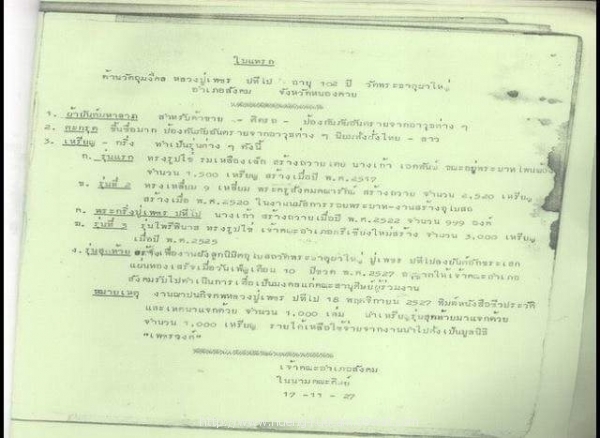 ใบแทรก
ด้านวัตถุมงคล หลวงปู่เพชร ปทีโป อายุ 102 ปี วัดพระธาตุผาใหญ่
อำเภอสังคม จังหวัดหนองคาย
๑. ผ้ายันต์มหาลาภ สำหรับค้าขาย - ติดรถ - ป้องกันภัยอันตรายจากอาวุธต่าง ๆ
2. ตะกรุด ขึ้นชื่อมาก ป้องกันภัยอันตรายจากอาวุธต่าง ๆ นิยมทั้งฝั่งไทย - ลาว
3. เหรียญ - กริ่ง ทำเป็นรุ่นต่าง ๆ ดังนี้
ก. รุ่นแรก ทรงรูปไข่ รมเหลืองเจ็ก สร้างถวายโดย นางเก้า เจตศันต์
จำนวน 1,500 เหรียญ สร้างเมื่อปี พ.ศ.2517
ข. รุ่นที่ 2 ทรงเหลี่ยม 9 เหลี่ยม พระครูสังคมคณารักษ์ สร้างถวาย จำนวน 2,520 เหรียญ
สร้างเมื่อ พ.ศ.2520 ในงานสร้างอุโบสถ
ค. พระกริ่งปู่เพชร ปทีโป นางเก้า สร้างถวายเมื่อปี พ.ศ.2522 จำนวน 999 องค์
ฆ. รุ่นที่ 3 รุ่นไพรีพินาศ ทรงรูปไข่ เจ้าคณะอำเภอศรีเชียงใหม่สร้าง จำนวน 3,000 เหรียญ
เมื่อปี พ.ศ.2525
ง. รุ่นสุดท้าย สร้างเพื่องานผูกอุโบสถวัดพระธาตุผาใหญ่ ปู่เพชร ปทีโปลงยันต์อักขระเอก
แผ่นทองเสร็จเมื่อวันเพ็ญเดือน 10 ปีชวด พ.ศ.2527 อนุญาตให้เจ้าคณะอำเภอ
สังคมรับไปดำเนินการเพื่อเป็นมงคลแก่คณะสานุศิษย์ผู้ร่วมงาน
หมายเหตุ งานฌาปนกิจศพหลวงปู่เพชร ปทีโป 18 พฤศจิกายน 2527 พิมพ์หนังสือชีวประวัติ
และเทศนาแจกด้วย จำนวน 1,000 เล่ม นำเหรียญรุ่นสุดท้ายมาแจกด้วย
จำนวน 1,000 เหรียญ รายได้เหลือใช้จ่ายจากงานนำไปตั้งเป็นมูลนิธิ
"เพชรวงค์"
เจ้าคณะอำเภอสังคม
ในนามคณะศิษย์
17 -11 - 27